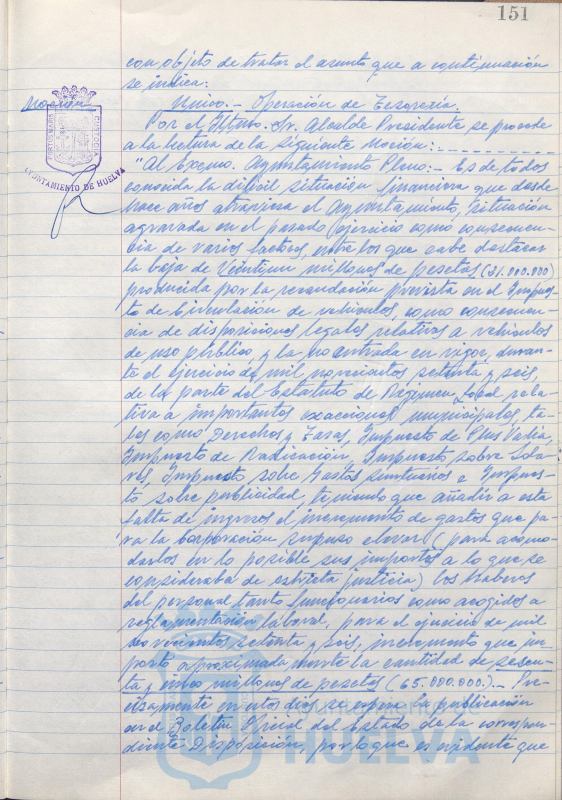 151
con objeto de tratar el asunto que a continuación
se indica:
Moción
Unico.- Operación de Tesorería.
Por el Iltmo. Sr. Alcalde Presidente se procede
a la lectura de la siguiente Moción:
"Al Excmo. Ayuntamiento Pleno:- Es de todos
conocida la difícil situación financiera que desde
hace años atraviesa el Ayuntamiento, situación
agravada en el pasado ejercicio como consecuen-
cia de varios factores, entre los que cabe destacar
la baja de Veintiun millones de pesetas (21.000.000)
producida por la recaudación prevista en el Impues-
to de Circulación de vehículos, como consecuen-
cia de disposiciones legales relativas a vehículos
de uso público, y la no entrada en vigor, duran-
te el ejercicio de mil novecientos setenta y seis,
de la parte del Estatuto de Régimen Local rela-
tiva a importantes exacciones municipales, ta-
les como Derechos y Tasas, Impuesto de Plus Valía,
Impuesto de Radicación, Impuesto sobre Sola-
res, Impuesto sobre Gastos suntuarios e Impues-
to sobre publicidad, teniendo que añadir a esta
falta de ingresos el incremento de gastos que pa-
ra la Corporación supuso elevar (para acomo-
darlos en lo posible sus importes a lo que se
consideraba de estricta justicia) los haberes
del personal tanto funcionarios como acogidos a
reglamentación laboral, para el ejercicio de mil
novecientos setenta y seis, incremento que im-
portó aproximadamente la cantidad de sesen-
ta y cinco millones de pesetas (65.000.000.)- Pre-
cisamente en estos días se espera la publicación
en el Boletín Oficial del Estado de la correspon-
diente Disposición, por lo que es evidente que
PORTUS MARIS
CUSTODIA
AYUNTAMIENTO DE HUELVA
HUELVA